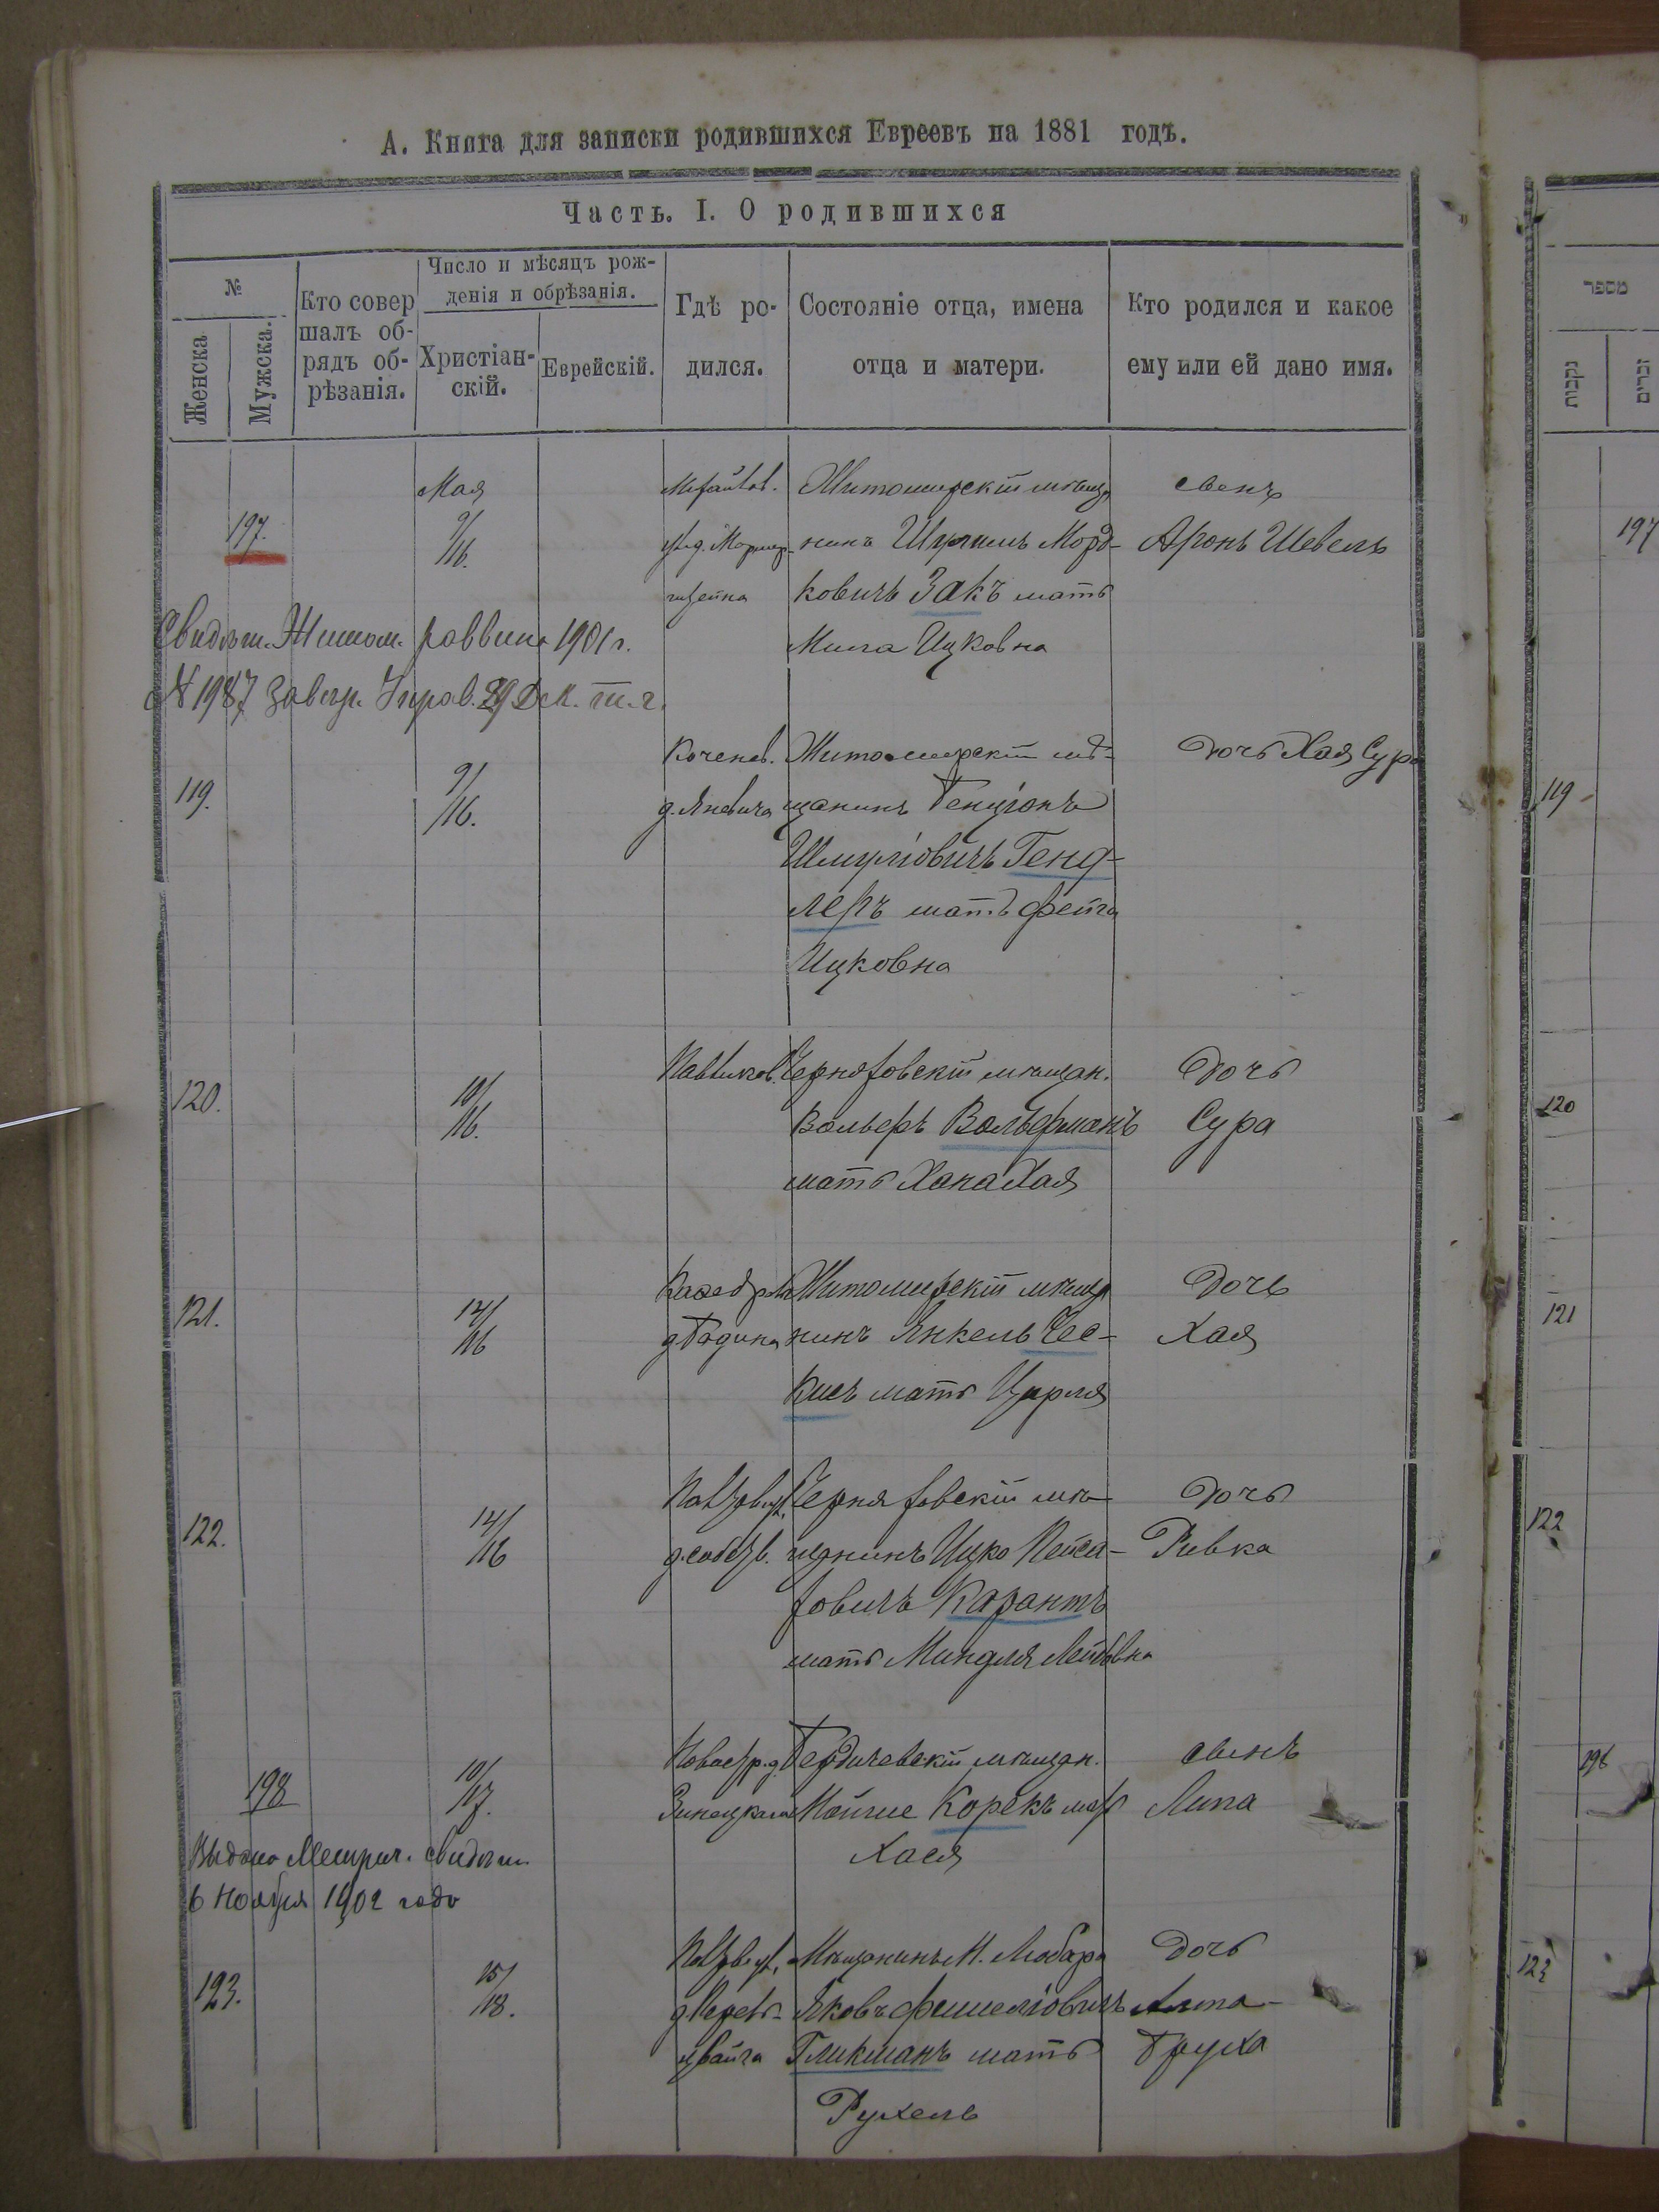 А. Книга для записки родившихся Евреевъ на 1881 годъ.
Часть. I. О родившихся
№
Женска
Мужска.
Кто совер
шалъ об-
рядъ об-
рѣзанія.
Число и мѣсяцъ рож-
денія и обрѣзанія.
Христіан-
скій.
Еврейскій.
Гдѣ ро-
дился.
Состояніе отца, имена
отца и матери.
Кто родился и какое
ему или ей дано имя.
197.
Мая
9/
16.
Житомирскій мѣща
нинъ Шулимъ Морд-
ковичъ Закъ мать
Ицковна
сынъ
Аронъ Шевель
Свидѣт. Житом. раввина 1901 г.
№ 1987 Управ. 29 Дек. т.г.
119.
9/
16.
д. Яневича
Житомирскій мѣ-
щанинъ Бенціонъ
Шмуліовичъ Генд-
леръ мать Фейга
Ицковна
Дочь Хая Сура
120.
10/
16.
Черняховскій мѣщан.
Вольфманъ
мать Хана Хая
Дочь
Сура
121.
14/
16
Житомирскій мѣща
нинъ Янкель Чес-
кисъ мать Цирля
Дочь
Хая
122.
14/
16
Черняховскій мѣ-
щанинъ Ицко Пейса-
ховичъ Карантъ
мать Миндля Лейбовна
Дочь
Ривка
198
10/
17.
Бердичевскій мѣщан.
Мойше Корекъ мать
Хася
сынъ
Липа
Выдано Метрич. свидѣт.
6 Ноября 1902 года
123.
15/
18.
Мѣщанинъ М. Любара
Яковъ Фишеліовичъ
Гликманъ мать
Рухель
Дочь
Бруха
מספר
נקבות
זכרים
197
119
120
121
122
198
123